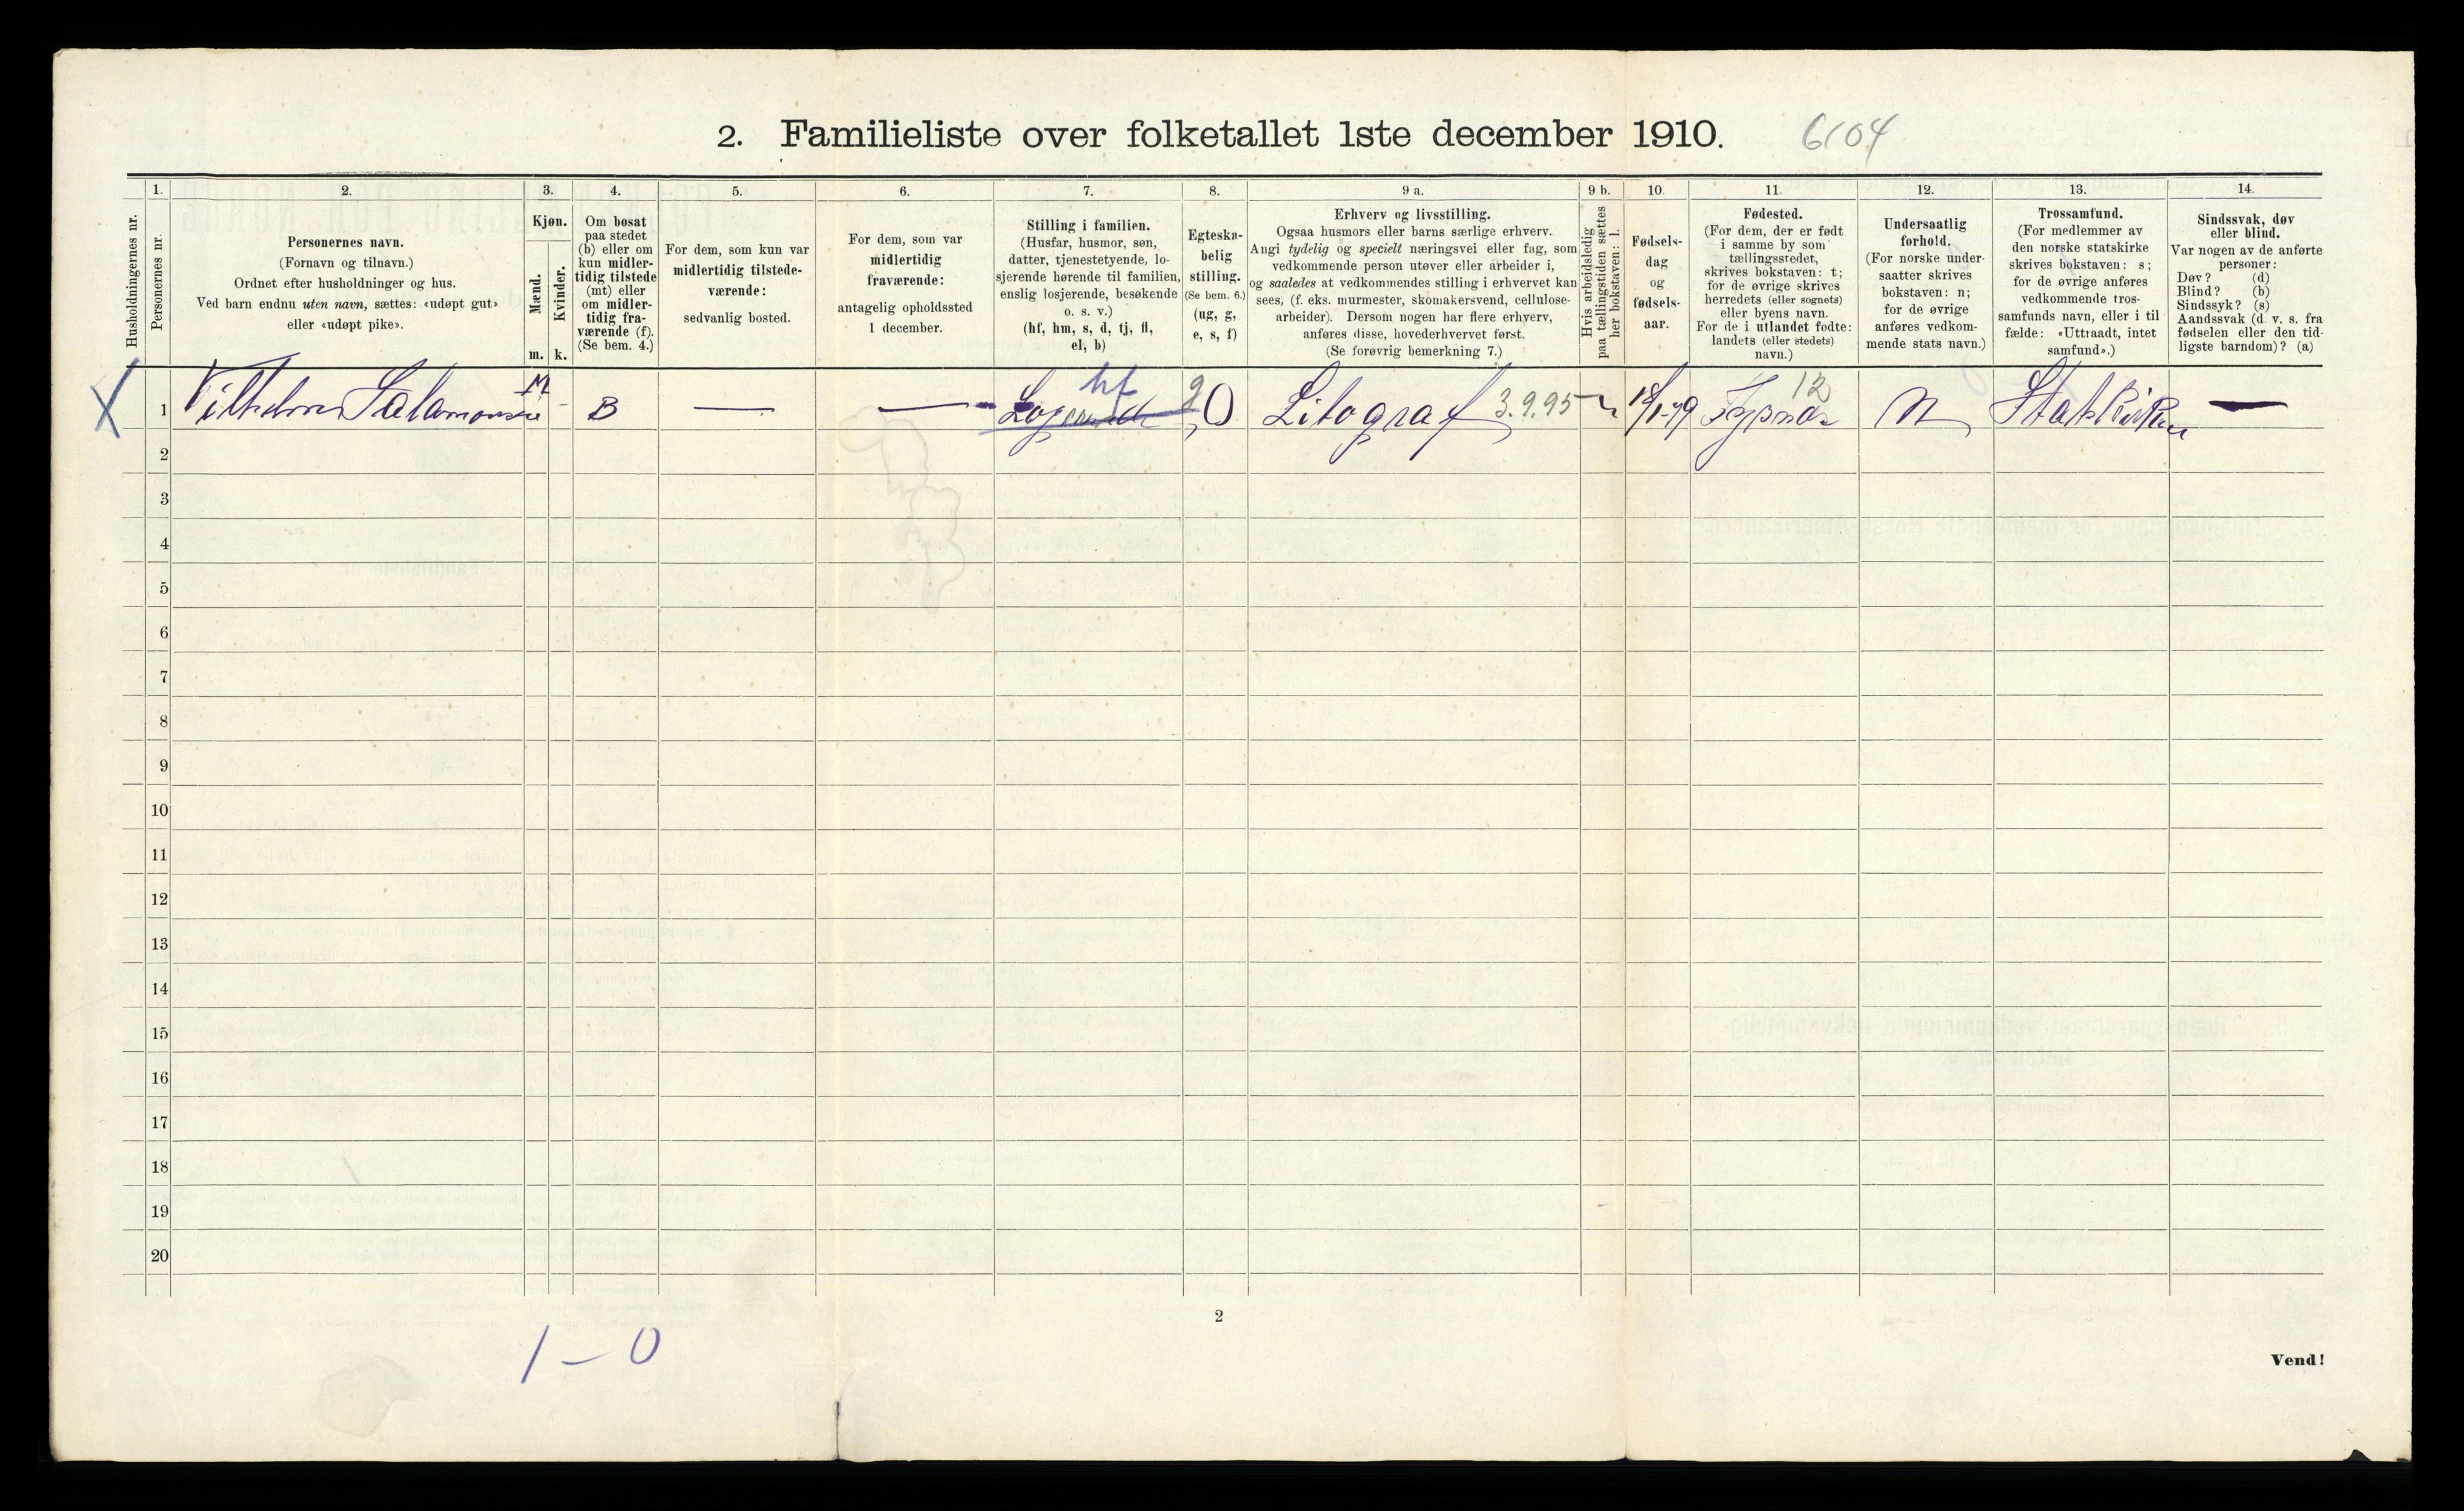 2. Familieliste over folketallet 1ste december 1910. 6104
Husholdningernes nr.
1.
Personernes nr.
2.
Personernes navn.
(Fornavn og tilnavn.)
Ordnet efter husholdninger og hus.
Ved barn endnu uten navn, sættes: «udøpt gut»
eller «udøpt pike».
3.
Kjøn.
Mænd.
m.
Kvinder.
k.
4.
Om bosat
paa stedet
(b) eller om
kun midler-
tidig tilstede
(mt) eller
om midler-
tidig fra-
værende (f).
(Se bem. 4.)
5.
For dem, som kun var
midlertidig tilstede-
værende:
sedvanlig bosted.
6.
For dem, som var
midlertidig
fraværende:
antagelig opholdssted
1 december.
7.
Stilling i familien.
(Husfar, husmor, søn,
datter, tjenestetyende, lo-
sjerende hørende til familien,
enslig losjerende, besøkende
o. s. v.)
(hf, hm, s, d, tj, fl,
el, b)
8.
Egteska-
belig
stilling.
(Se bem. 6.)
(ug, g,
e, s, f)
9 a.
Erhverv og livsstilling.
Ogsaa husmors eller barns særlige erhverv.
Angi tydelig og specielt næringsvei eller fag, som
vedkommende person utøver eller arbeider i,
og saaledes at vedkommendes stilling i erhvervet kan
sees, (f. eks. murmester, skomakersvend, cellulose-
arbeider). Dersom nogen har flere erhverv,
anføres disse, hovederhvervet først.
(Se forøvrig bemerkning 7.)
9 b.
Hvis arbeidsledig
paa tællingstiden sættes
her bokstaven: l.
10.
Fødsels-
dag
og
fødsels-
aar.
11.
Fødested.
(For dem, der er født
i samme by som
tællingsstedet,
skrives bokstaven: t;
for de øvrige skrives
herredets (eller sognets)
eller byens navn.
For de i utlandet fødte:
landets (eller stedets)
navn.)
12.
Undersaatlig
forhold.
(For norske under-
saatter skrives
bokstaven: n;
for de øvrige
anføres vedkom-
mende stats navn.)
13.
Trossamfund.
(For medlemmer av
den norske statskirke
skrives bokstaven: s;
for de øvrige anføres
vedkommende tros-
samfunds navn, eller i til
fælde: «Uttraadt, intet
samfund».)
14.
Sindssvak, døv
eller blind.
Var nogen av de anførte
personer:
Døv? (d)
Blind? (b)
Sindssyk? (s)
Aandssvak (d. v. s. fra
fødselen eller den tid-
ligste barndom)? (a)
X 1 Vilhelm M - B — — hf g O Litograf 3.9.95 12 N —
2
3
4
5
6
7
8
9
10
11
12
13
14
15
16
17
18
19
20
2
1 – 0
Vend!